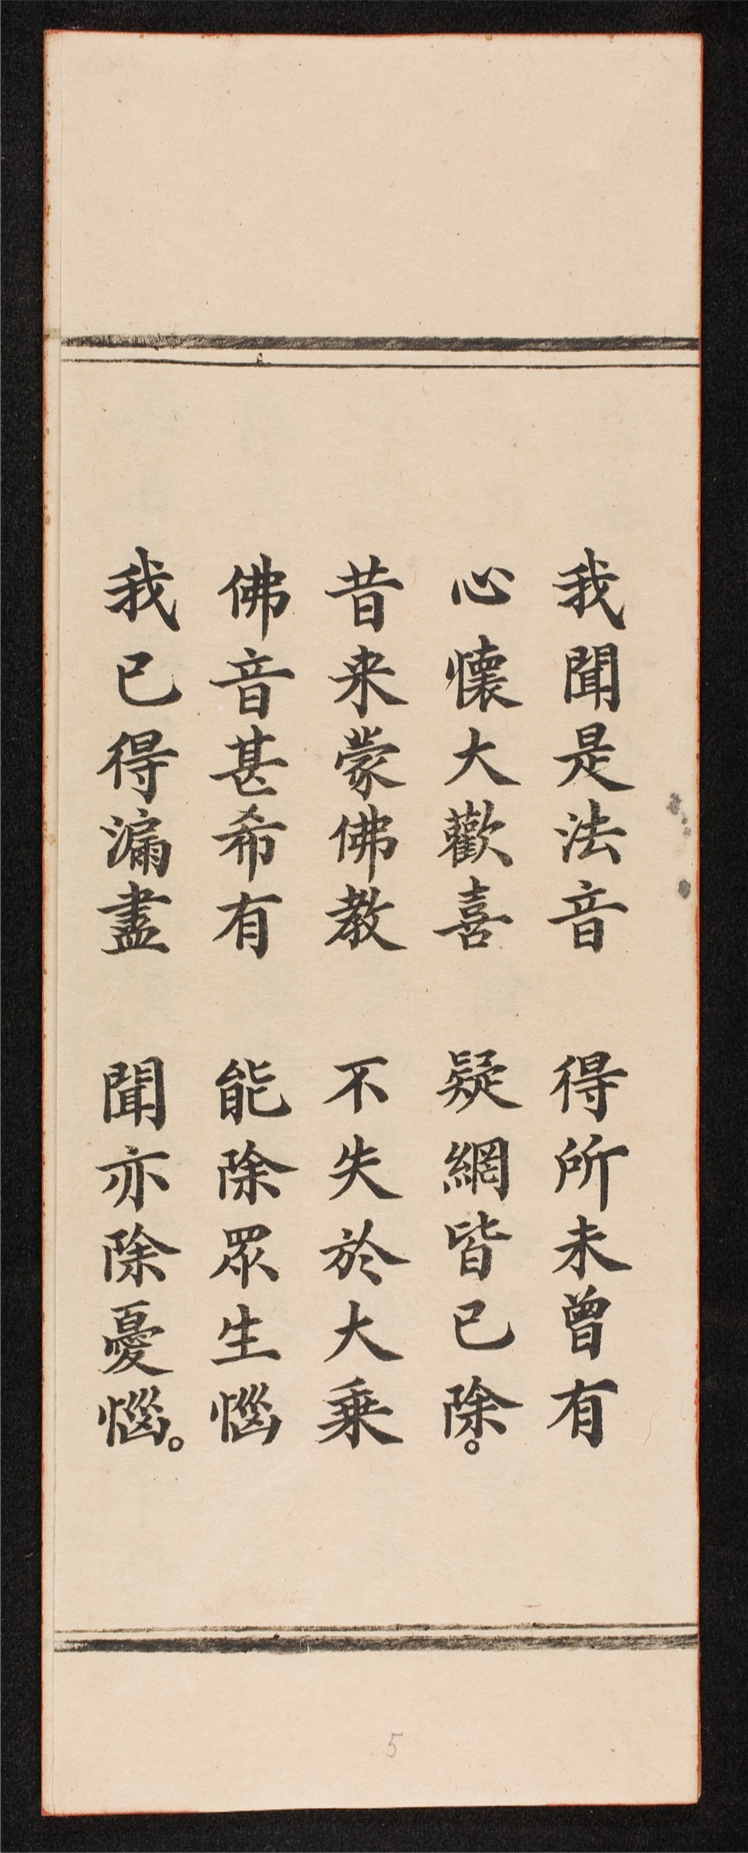 我聞是法音　得所未曾有
心懷大歡喜　疑網皆已除。
昔来蒙佛教　不失於大乗
佛音甚希有　能除眾生惱
我已得漏盡　聞亦除憂惱。
5